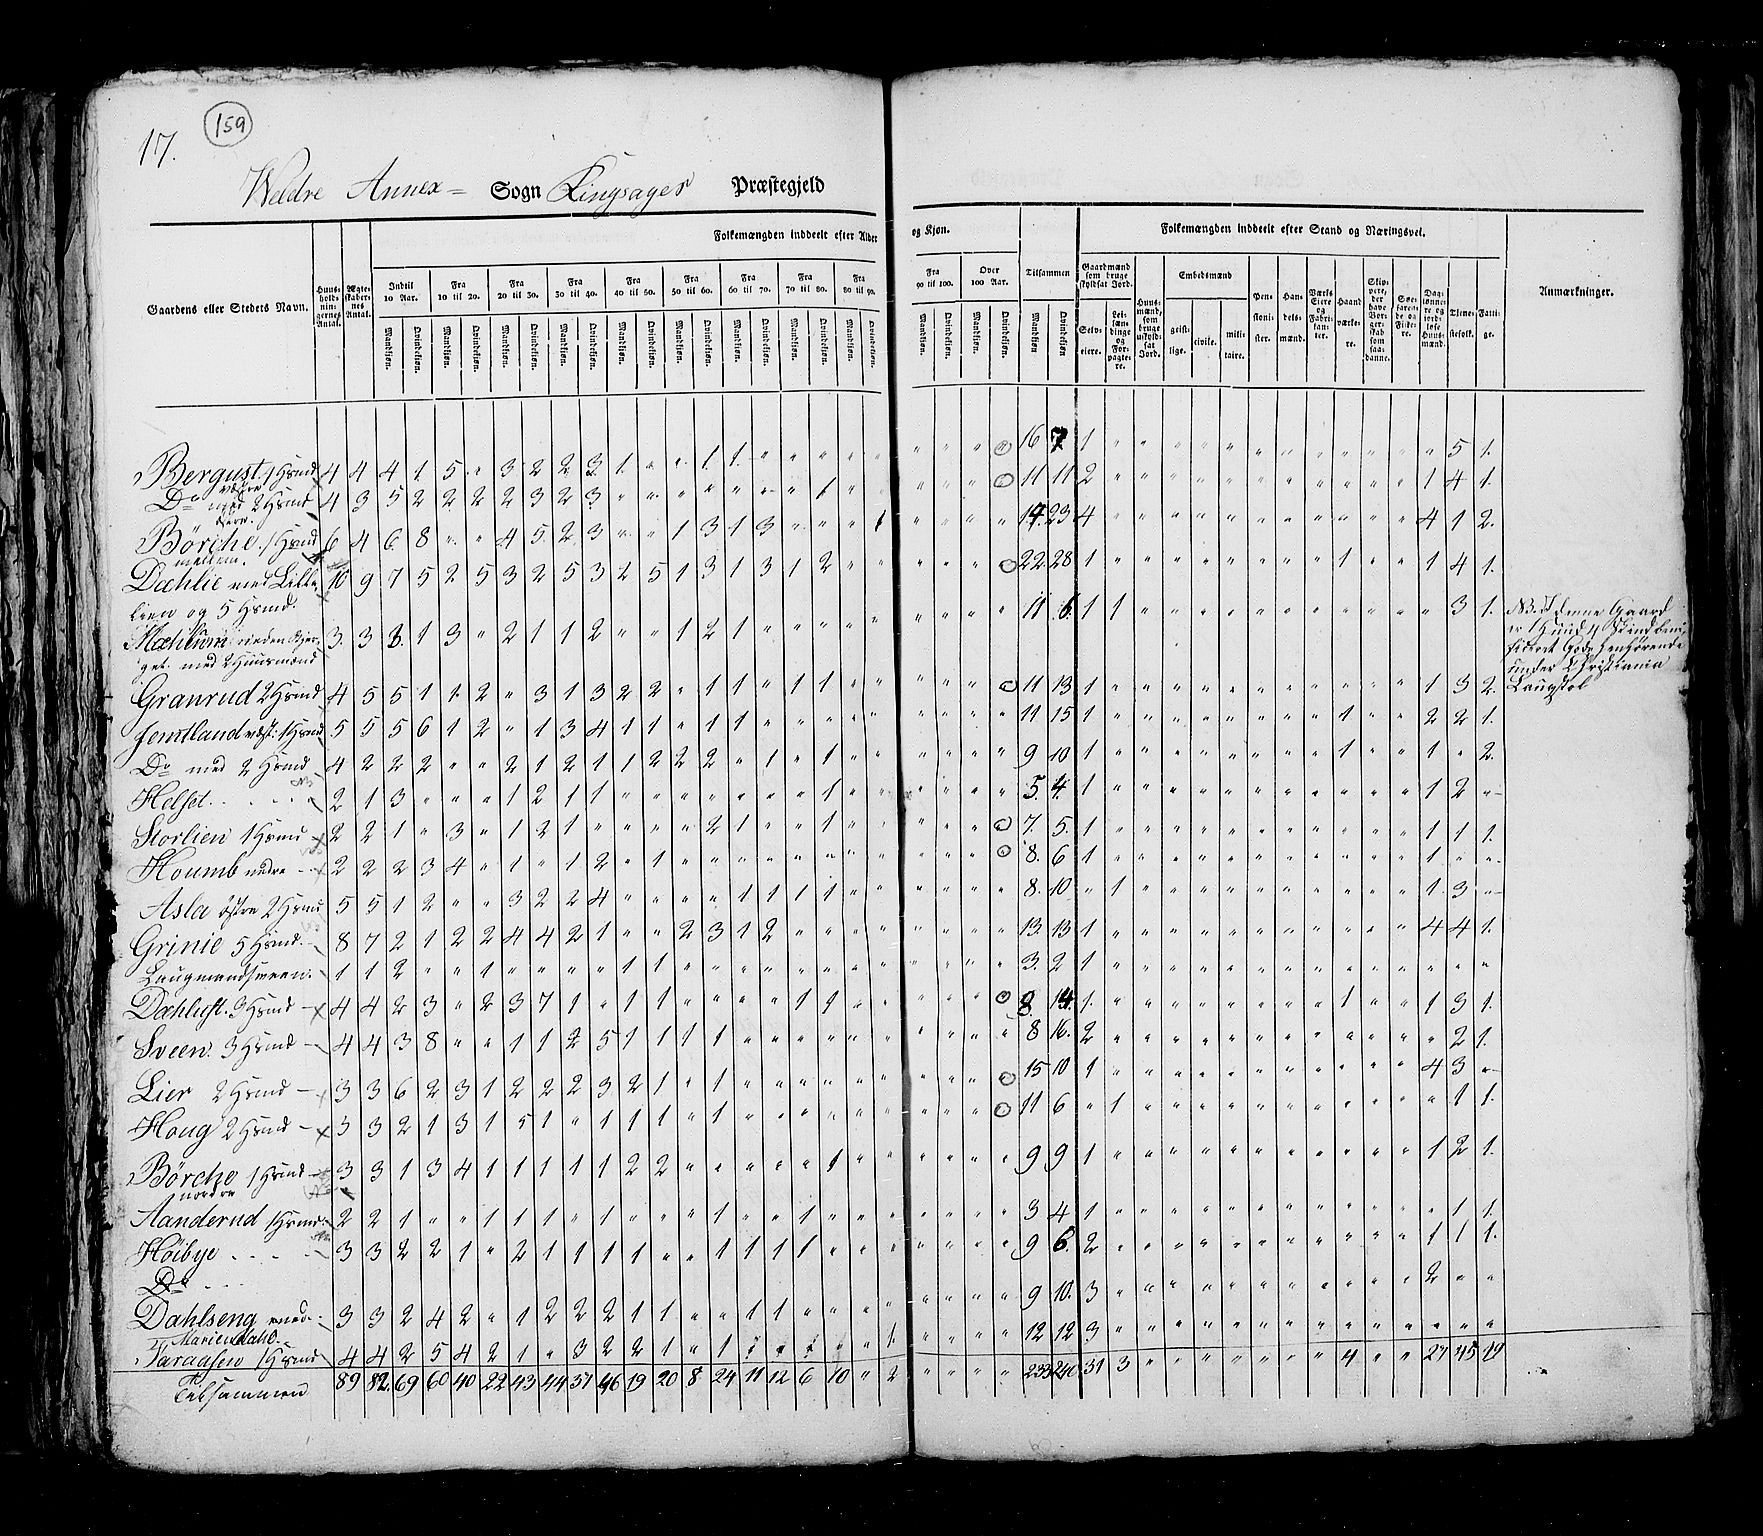 159
17.
Weldre Annex = Sogn Ringsager Præstegjeld
Folkemængden inddeelt efter Alder og Kjøn.
Folkemængden inddeelt efter Stand og Næringsvei.
Gaardens eller Stedets Navn.
Huus-holdningernes Antal.
Ægteskabernes Antal.
Indtil 10 Aar.
Fra 10 til 20.
Fra 20 til 30.
Fra 30 til 40.
Fra 40 til 50.
Fra 50 til 60.
Fra 60 til 70.
Fra 70 til 80.
Fra 80 til 90.
Fra 90 til 100.
Over 100 Aar.
Tilsammen
Mandkjøn. Qvindekjøn.
Gaardmænd som bruge skyldsat Jord.
Selveiere.
Leilændinge og Forpagtere.
Huusmænd, som bruge uskyldsat Jord.
Embedsmænd
geistlige. civile. militaire.
Pensionister.
Handelsmænd.
Værks Eiere og Fabrikanter.
Haandværkere.
Søefarende og Fiskere.
Daglønnere og jordløse Huusmænd.
Tjenestefolk.
Fattige.
Anmærkninger.
Bergust. 1 Hsmd 4 4 4 1 5 " 3 2 2 3 1 " " 1 1 " " " " 16 7 1 " 5 1.
Do med 2 Hsmd 4 3 5 2 2 2 2 3 2 3 " " " " " " 1 " " 11 11 2 " 1 4 1.
Børche. 1 Hsmd 6 4 6 8 " " 4 5 2 3 " " 1 3 1 3 " " " 1 17. 23 4 " 4 1 2.
mellem.
Dæhlie med Lille 10 9 7 5 2 5 3 2 5 3 2 5 1 3 1 3 1 2 " " 22. 28 1 " 1 " 1 4 1.
lien og 5 Hsmd.
Mæhlum 3. 3 3. 1 3 " 2 1 1 2 " " 1 2 1 " " " " 11 6. 1 1 " 3 1.
get. med 2 Huusmænd
Granrud 2 Hsmd 4 5 5 1 1. 2 " 3 1 3 2 2 " 1 1 " 1 1 " " 11 13 1 " 1 3 2.
Jemtland væst: 1 Hsmd 5 5 5 6 1 2 " 1 3 4 1 1 " 1 1 " " " 11 15 1 " 1 " 2 2 1.
Do med 2 Hsmd 4 2 2 2 " " 2 1 2 1 1 2 2 2 " 1 " 1 " " 9 10 1 " 1 " 1 " 2.
Helset. 2 1 3 " " " 1 2 1 1 " " " " " " " 1 " " 5. 4. 1 " 1 2 "
Storlien 1 Hsmd 2 2 1 " 3 " 1 2 1 " " " " 2 1 " " 1 " " 7. 5. 1 " 1 1 1.
Houmb nedre 2 2 2 3 4 " 1 " 1 2 " 1 " " " " 8. 6 1 " 1 " "
Asla østre 2 Hsmd 5 5 1 2 " " 3 2 2 4 " " " " 1 1 1 1 " " 8. 10 " 1 " 1. 3 "
Grinie 5 Hsmd. 8 7 2 1 2 2 4 4 2 1 " " 2 3 1 2 " " " " 13 13 1 " 4 4 1.
Laugmandsveen. 1 1 2 " " 1 " " " " 1 1 " " " " 3. 2 1 "
Dæhlust. 3 Hsmd 4 4 2 3 " 2 3 7 1 " 1 1 " " " " 1 1 " " 8. 14. 1. " 1 " 1 3 1.
Sveen. 3 Hsmd 4 4 3 8 " " 1 1 2 5 1 1 1 1 " " " " 8 16. 2 " 2 1.
Lier 2 Hsmd 3 3 6 2 3 1 2 2 2 3 2 1 " 1 " " " " 15 10 1 " 4 3 "
Houg 2 Hsmd 3 3 2 1 3 1 5 1 " 1 1 1 " 1 " " " " 11 6 " 1 " 1 1.
Børche 1 Hsmd 3 3 1 3 4 1 1 1 1 1 2 2 " " " " " 1 " " 9 9 1 " 1 2 1.
nordre
Aanderud 1 Hsmd. 2 2 1 " " 1 1 1 " 1 " " " 1 " 1 " " 3 4 1 " 1 1.
Høibye 3 3 2 2 1 " 2 1 1 1 1 " " 1 1 1 1 " " " 9 6. 2 " 1 1 1.
Do
Dahlseng med 3 3 2 4 2 " 1 2 2 2 1 1 " " 1 1 " " " 9 10. 3 " 2 " "
Mariendahl.
Taraasen 1 Hsmd 4 4 2 5 4 2 1 " 3 2 2 1 " 1 " " " 1. 12 12 3 "
Tilsammen 89 82. 69 60 40 22 43 44 37 46 19 20 8 24 11 12 6 10 " 2 " " " " 233 240 31 3 " 4 " " 27 45 19
NB. Til denne Gaard
er 1 Huud 4 Skind bene-
ficeret Gods henhørende
under Christiania
Laugstol